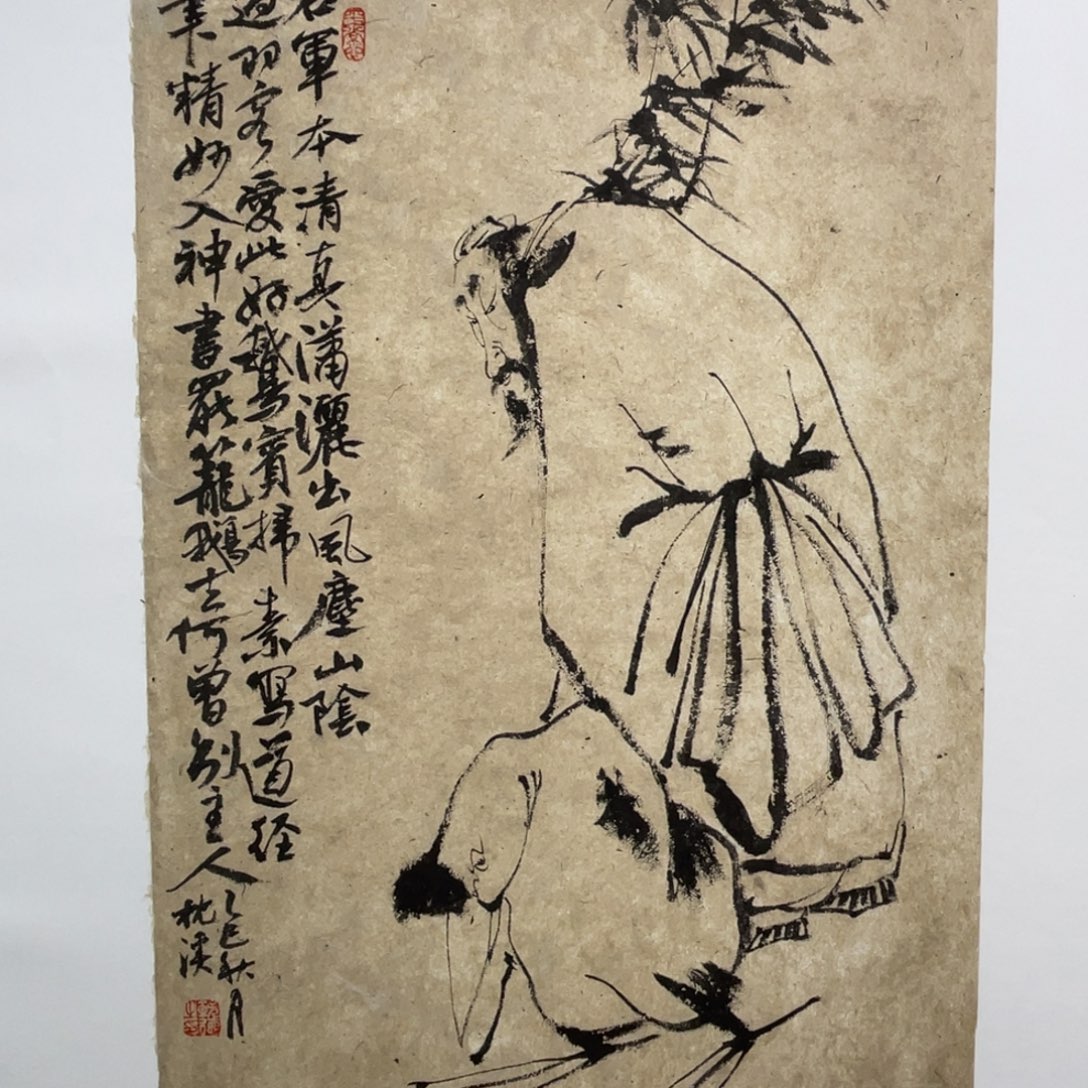 右軍本清真瀟灑出風塵山陰
過羽客愛此好鵞賓掃素寫道经
筆精妙入神書罷籠鵝去何曾別主人
乙巳秋月
枕溪